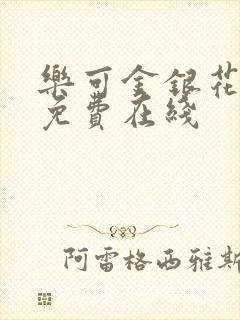 樂可金銀花
免費在綫
阿雷格西雅斯